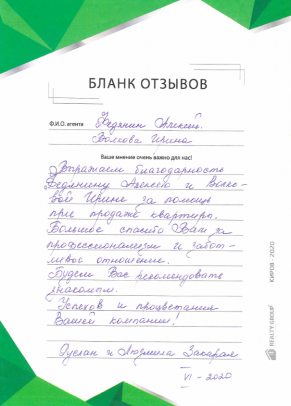 БЛАНК ОТЗЫВОВ
Ф.И.О. агента Федянин Алексей.
Волкова Ирина
Ваше мнение очень важно для нас!
Выражаем благодарность
Федянину Алексею и Волко-
вой Ирине за помощь
при продаже квартиры.
Большое спасибо Вам за
профессионализм и забот-
ливое отношение.
Будем Вас рекомендовать
знакомым.
Успехов и процветания
Вашей компании!
Руслан и Людмила
VI - 2020
REALTY GROUP
КИРОВ - 2020